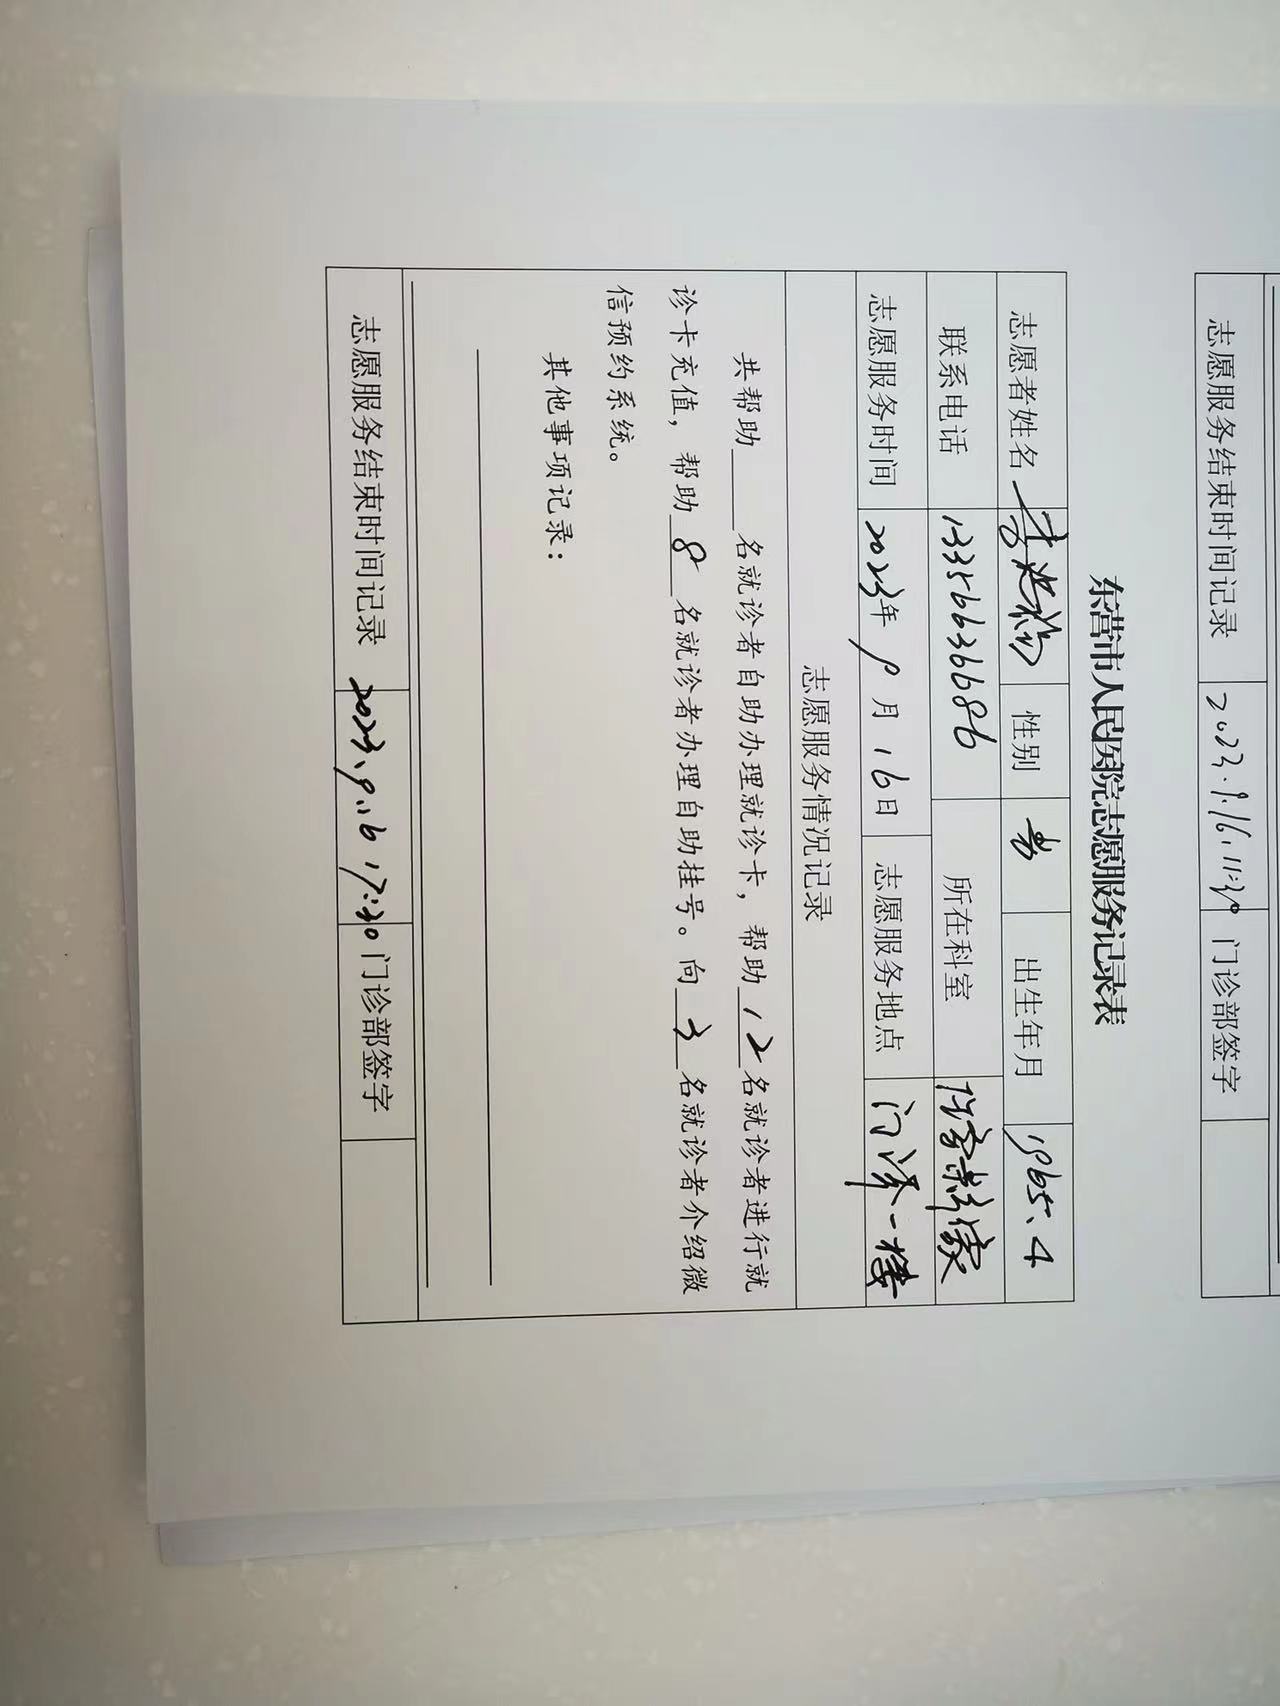 志愿服务结束时间记录 2023.9.16.11:30 门诊部签字
东营市人民医院志愿服务记录表
志愿者姓名 李 性别 男 出生年月 1965、4
联系电话 13356636686 所在科室
志愿服务时间 2023年9月16日 志愿服务地点 门诊一楼
志愿服务情况记录
共帮助____名就诊者自助办理就诊卡，帮助 12 名就诊者进行就
诊卡充值，帮助 8 名就诊者办理自助挂号。向 3 名就诊者介绍微
信预约系统。
其他事项记录：
志愿服务结束时间记录 2023、9、16 17:30 门诊部签字